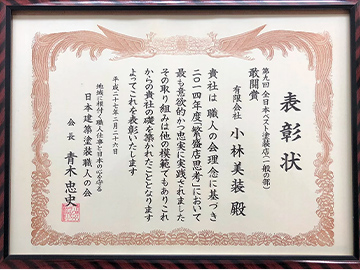 表彰状
第九回 全日本ベスト塗装店(一般の部)
敢闘賞
有限会社 小林美装 殿
貴社は 職人の会理念に基づき
二〇一四年度「繁盛店思考」において
最も意欲的かつ忠実に実践されました
その取り組みは他の模範でもありこれ
からの貴社の礎を築かれたこととなります
よってこれを表彰いたします
平成二十七年二月二十六日
地域に根付く職人仕事と日本の心を守る
日本建築塗装職人の会
会長 青木忠史